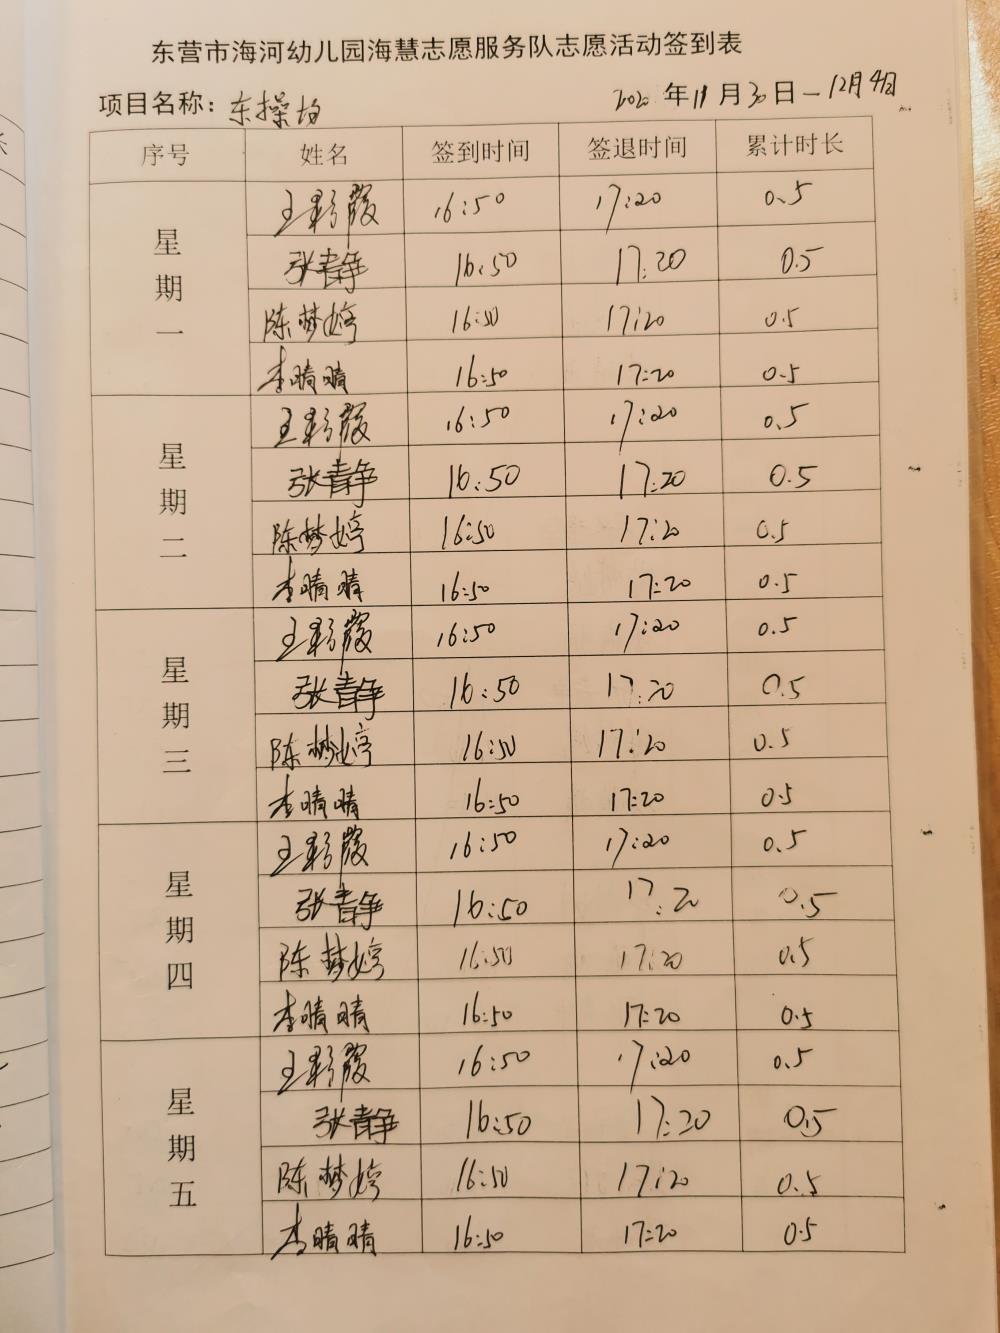 东营市海河幼儿园海慧志愿服务队志愿活动签到表
项目名称：东操场 2020年11月30日—12月4日
序号 姓名 签到时间 签退时间 累计时长
星期一
王彩霞 16:50 17:20 0.5
张青静 16:50 17:20 0.5
陈梦婷 16:50 17:20 0.5
李晴晴 16:50 17:20 0.5
星期二
王彩霞 16:50 17:20 0.5
张青静 16:50 17:20 0.5
陈梦婷 16:50 17:20 0.5
李晴晴 16:50 17:20 0.5
星期三
王彩霞 16:50 17:20 0.5
张青静 16:50 17:20 0.5
陈梦婷 16:50 17:20 0.5
李晴晴 16:50 17:20 0.5
星期四
王彩霞 16:50 17:20 0.5
张青静 16:50 17:20 0.5
陈梦婷 16:50 17:20 0.5
李晴晴 16:50 17:20 0.5
星期五
王彩霞 16:50 17:20 0.5
张青静 16:50 17:20 0.5
陈梦婷 16:50 17:20 0.5
李晴晴 16:50 17:20 0.5